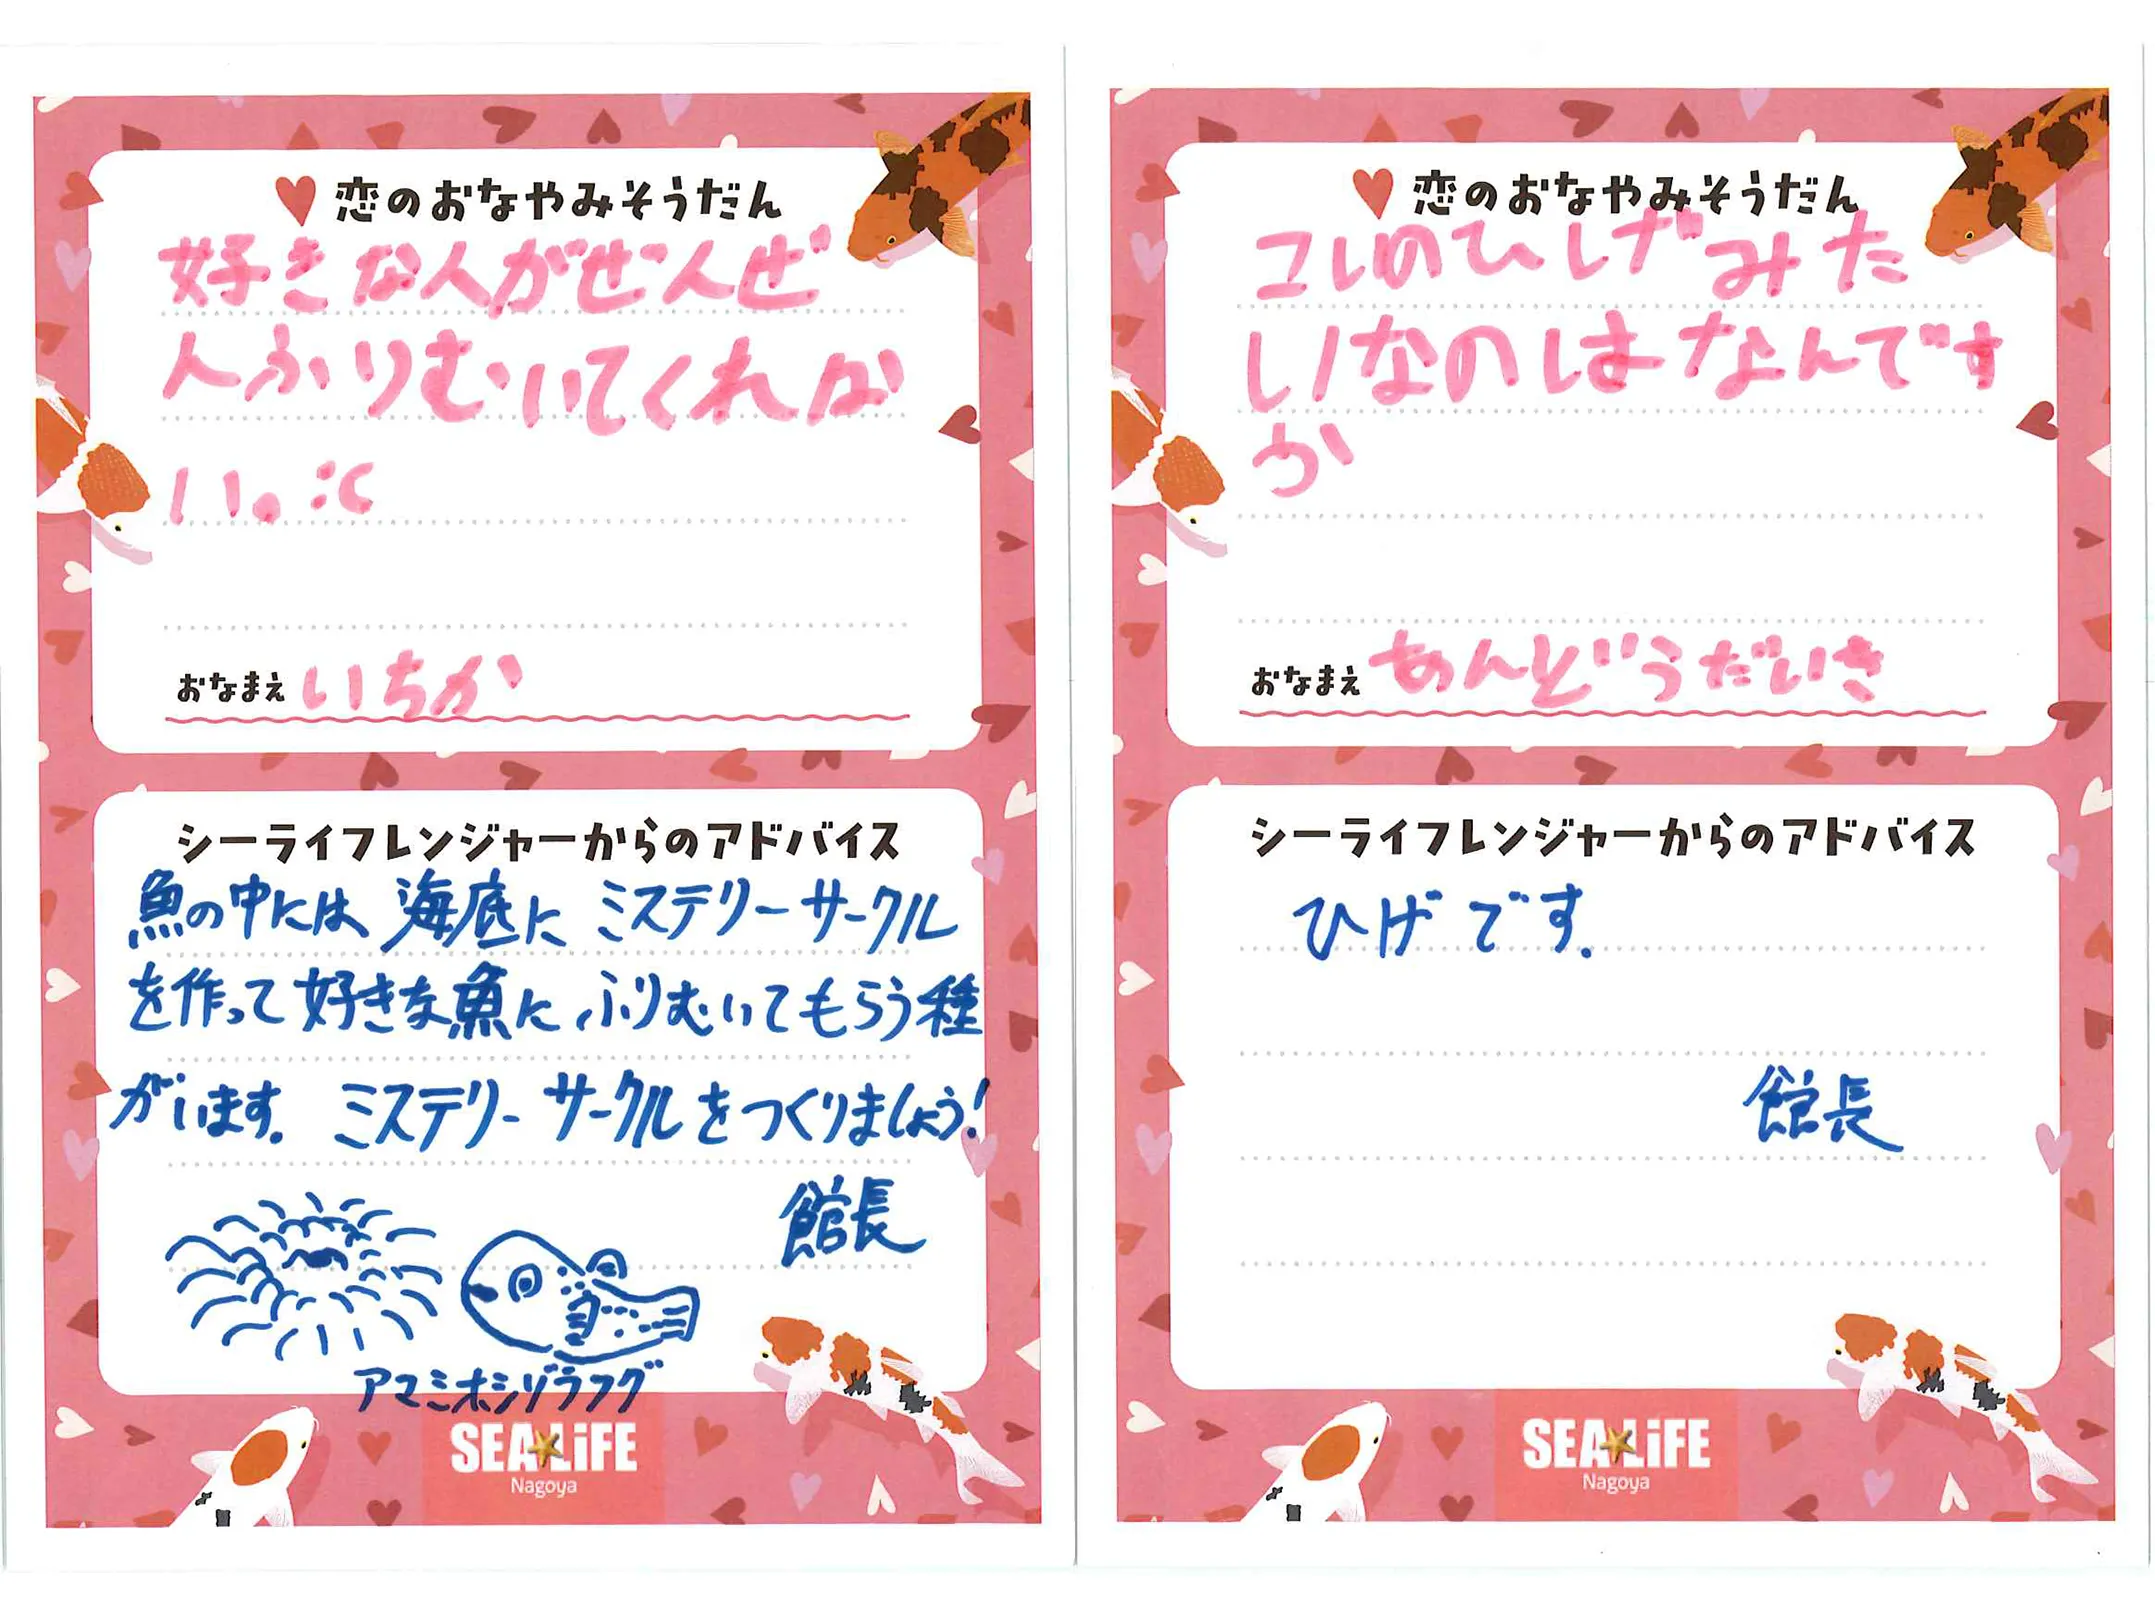 恋のおなやみそうだん
好きな人がぜんぜ
んふりむいてくれな
い。:c
おなまえ いちか
シーライフレンジャーからのアドバイス
魚の中には海底にミステリーサークル
を作って好きな魚にふりむいてもらう種
がいます。ミステリーサークルをつくりましょう!
館長
アマミホシゾラフグ
SEA LiFE
Nagoya
恋のおなやみそうだん
コレのひげみた
いなのはなんです
か
おなまえ あんどうだいき
シーライフレンジャーからのアドバイス
ひげです.
館長
SEA LiFE
Nagoya